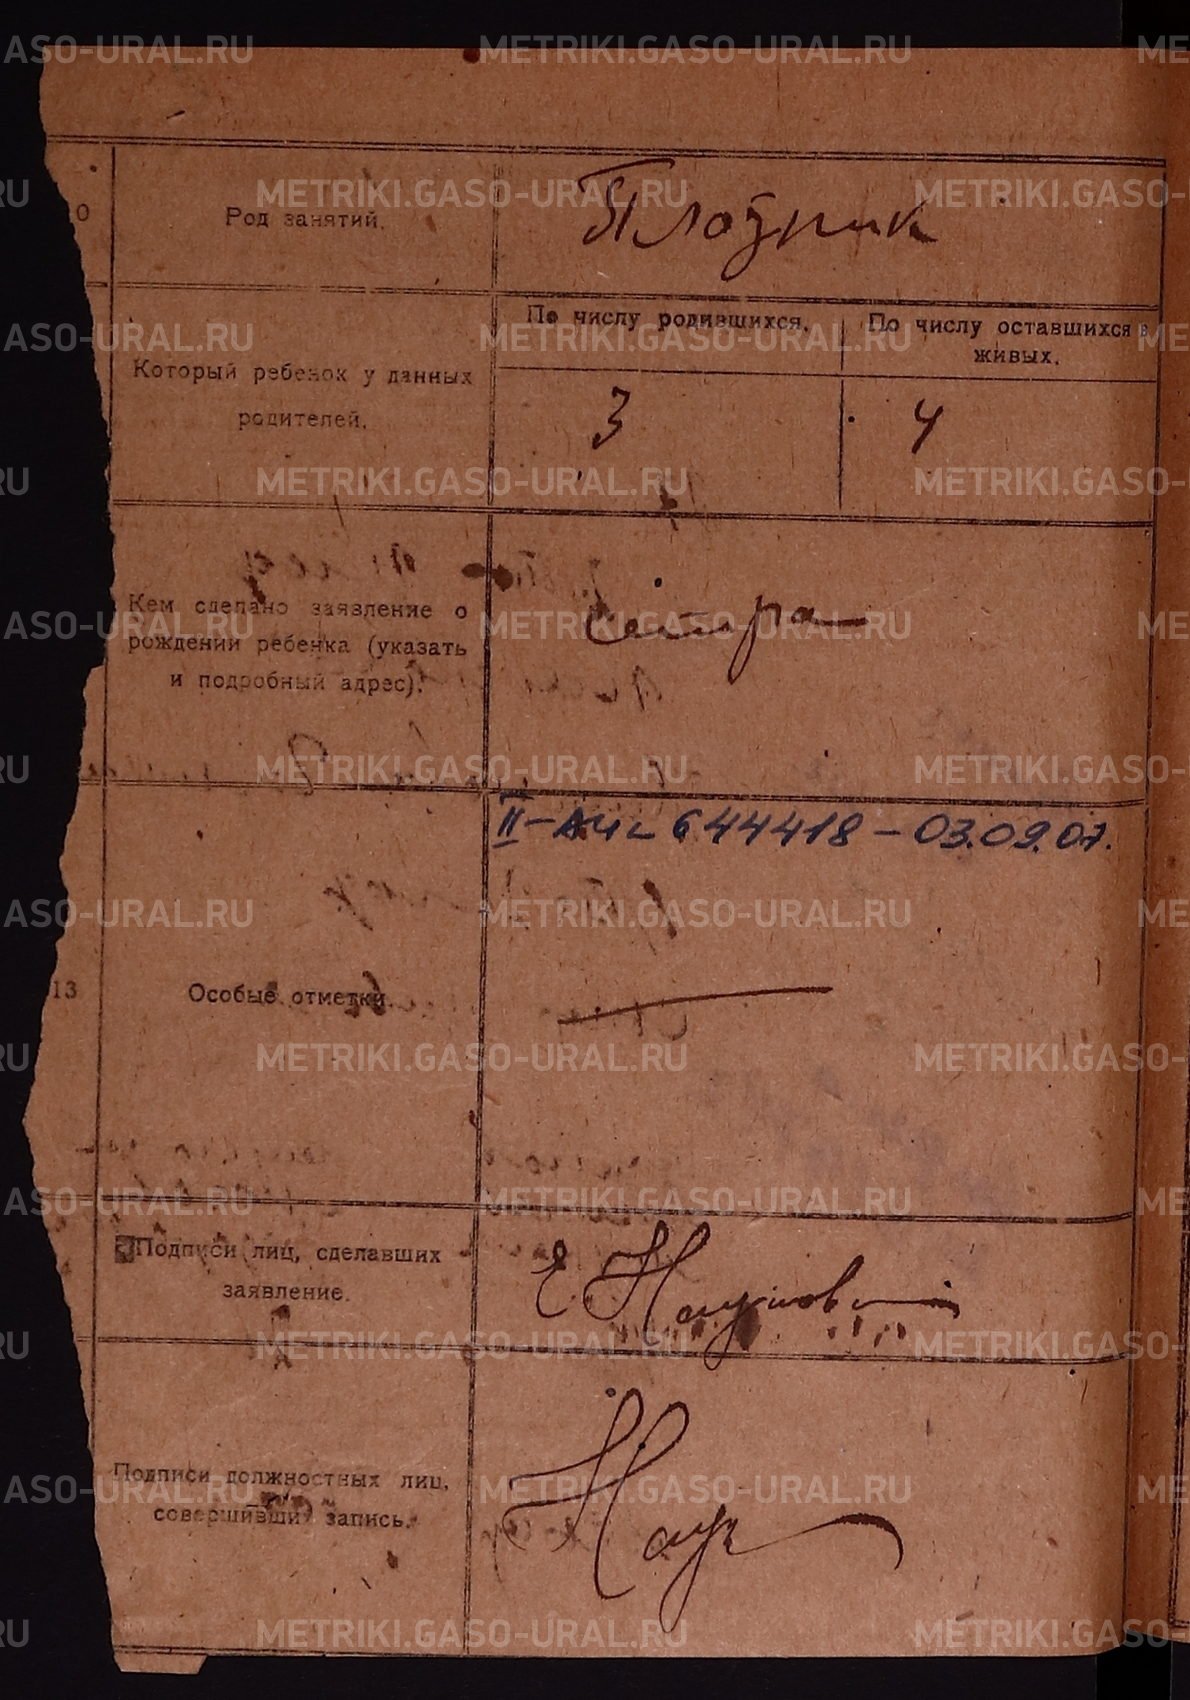 0
Род занятий.
Плотник
Который ребенок у данных
родителей.
По числу родившихся.
По числу оставшихся в
живых.
3
4
Кем сделано заявление о
рождении ребенка (указать
и подробный адрес).
сестра
13
Особые отметки.
II-АИ 644418 - 03.09.07.
Подписи лиц, сделавших
заявление.
Е Наумов
Подписи должностных лиц,
совершивши запись.
Нау
METRIKI.GASO-URAL.RU